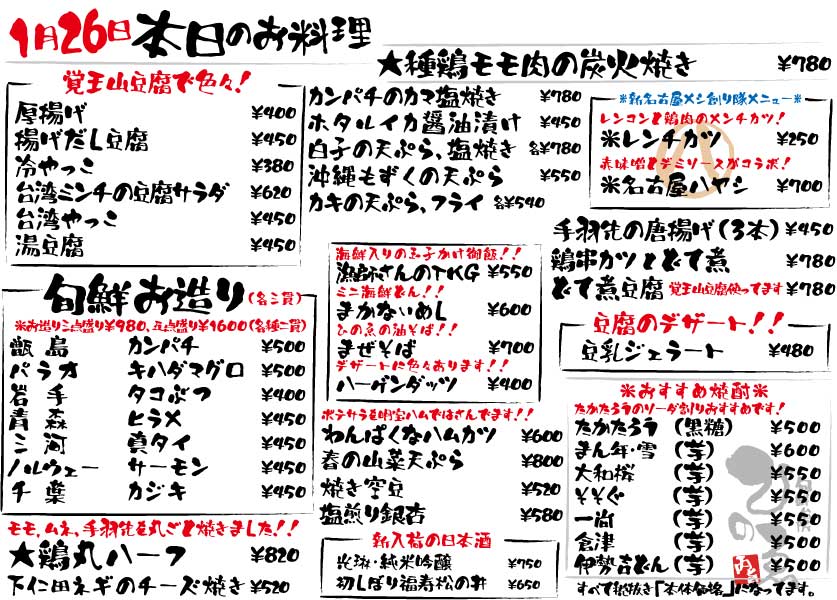 1月26日本日のお料理
★種鶏モモ肉の炭火焼き ¥780
覚王山豆腐で色々!
厚揚げ ¥400
揚げだし豆腐 ¥450
冷やっこ ¥380
台湾ミンチの豆腐サラダ ¥620
台湾やっこ ¥450
湯豆腐 ¥450
カンパチのカマ塩焼き ¥780
ホタルイカ醤油漬け ¥450
白子の天ぷら、塩焼き 各¥780
沖縄もずくの天ぷら ¥550
カキの天ぷら、フライ 各¥540
※新名古屋メシ創り隊メニュー※
レンコンと鶏肉のメンチカツ!
米レンチカツ ¥250
赤味噌とデミソースがコラボ!
米名古屋ハヤシ ¥700
手羽先の唐揚げ(3本) ¥450
鶏串カツとどて煮 ¥780
どて煮豆腐 覚王山豆腐使ってます ¥780
旬鮮お造り(各三貫)
※お造り三点盛り¥980、五点盛り¥1600(各種二貫)
甑島 カンパチ ¥500
パラオ キハダマグロ ¥500
岩手 タコぶつ ¥400
青森 ヒラメ ¥450
三河 真タイ ¥450
ノルウェー サーモン ¥450
千葉 カジキ ¥450
海鮮入りの玉子かけ御飯!!
漁師さんのTKG ¥550
ミニ海鮮どん!!
まかないめし ¥600
ひの魚の油そば!!
まぜそば ¥700
デザートに色々おります!!
ハーゲンダッツ ¥400
豆腐のデザート!!
豆乳ジェラート ¥480
ポテサラを明宝ハムではさんでます!!
わんぱくなハムカツ ¥600
春の山菜天ぷら ¥800
焼き空豆 ¥520
塩煎り銀杏 ¥580
※おすすめ焼酎※
たかたろうのソーダ割りおすすめです!
たかたろう (黒糖) ¥500
まん年・雪 (芋) ¥600
大和桜 (芋) ¥550
そそぐ (芋) ¥550
一尚 (芋) ¥550
倉津 (芋) ¥500
伊勢吉どん(芋) ¥500
すべて税抜き「本体価格」になってます。
モモ、ムネ、手羽先を丸ごと焼きました!!
★鶏丸ハーフ ¥820
下仁田ネギのチーズ焼き ¥520
新入荷の日本酒
純米吟醸 ¥750
初しぼり福寿松の井 ¥650